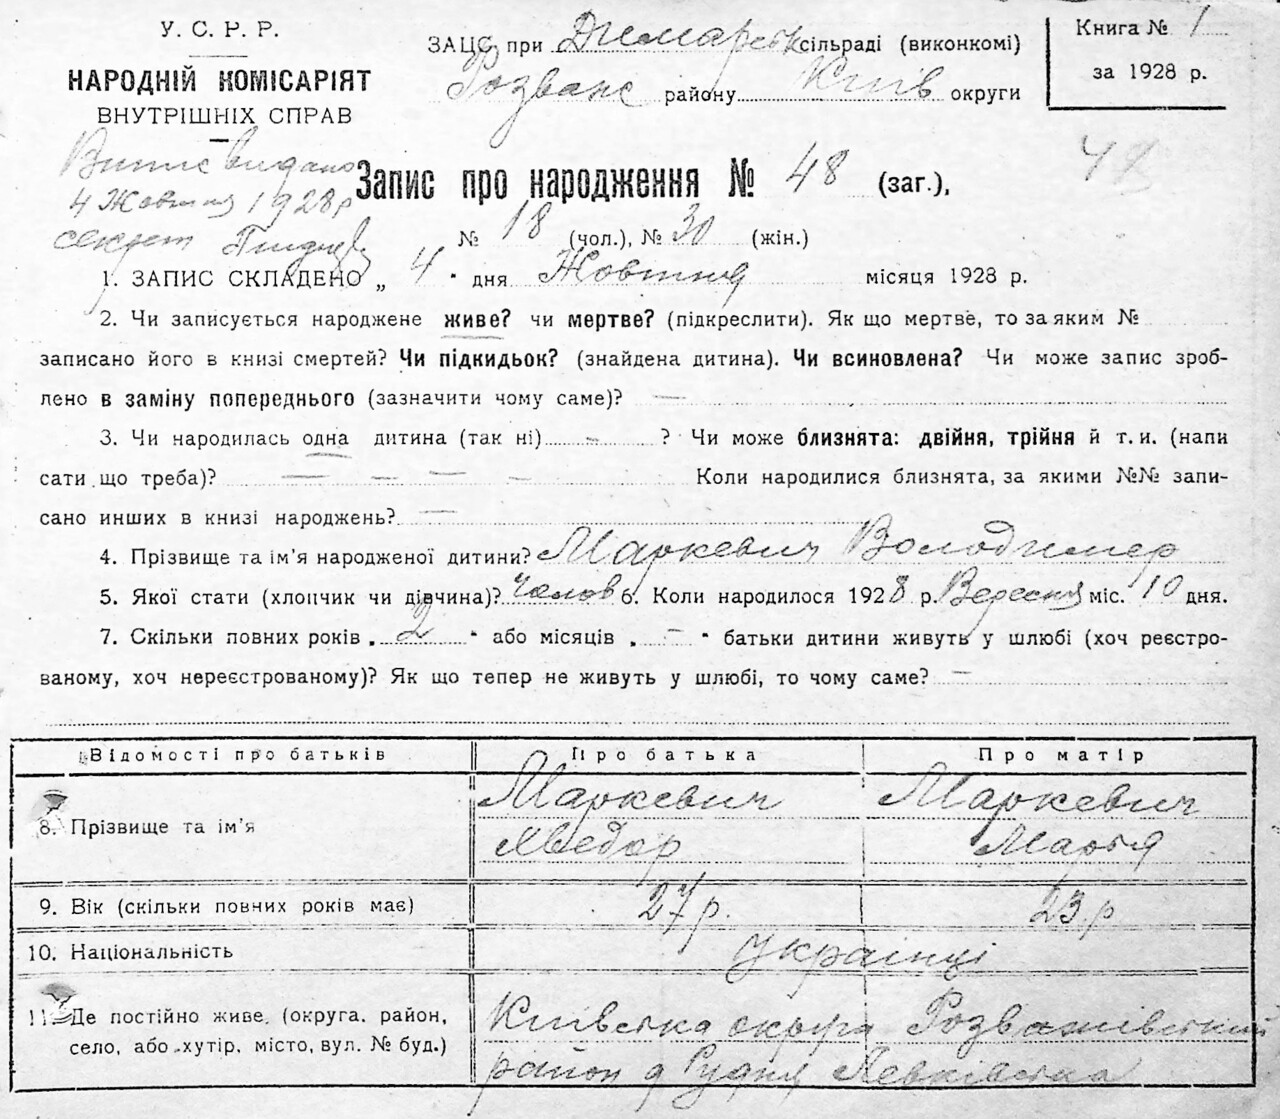 У. С. Р. Р.
НАРОДНІЙ КОМІСАРІЯТ
ВНУТРІШНІХ СПРАВ
ЗАЦС при сільраді (виконкомі)
Розваж району Київ округи
Книга № 1
за 1928 р.
Випис видано
4 Жовтня 1928 р
секрет
Запис про народження № 48 (заг.),
48
№ 18 (чол.), № 30 (жін.)
1. ЗАПИС СКЛАДЕНО „ 4 " дня Жовтня місяця 1928 р.
2. Чи записується народжене живе? чи мертве? (підкреслити). Як що мертве, то за яким №
записано його в книзі смертей? Чи підкидьок? (знайдена дитина). Чи всиновлена? Чи може запис зроб-
лено в заміну попереднього (зазначити чому саме)? —
3. Чи народилась одна дитина (так ні) - ? Чи може близнята: двійня, трійня й т. и. (напи
сати що треба)? — — — — Коли народилися близнята, за якими №№ запи-
сано инших в книзі народжень? —
4. Прізвище та ім'я народженої дитини? Маркевич Володимер
5. Якої стати (хлопчик чи дівчина)? Чолов 6. Коли народилося 1928 р. Вересня міс. 10 дня.
7. Скільки повних років „ 2 " або місяців „ - " батьки дитини живуть у шлюбі (хоч реєстро-
ваному, хоч нереєстрованому)? Як що тепер не живуть у шлюбі, то чому саме? —
Відомості про батьків Про батька Про матір
8. Прізвище та ім'я Маркевич Маркевич
Хведор Марія
9. Вік (скільки повних років має) 27 р. 23 р
10. Національність українці
11. Де постійно живе (округа, район, Київська округа Розважівський
село, або хутір, місто, вул. № буд.) район д Рудня Левківська